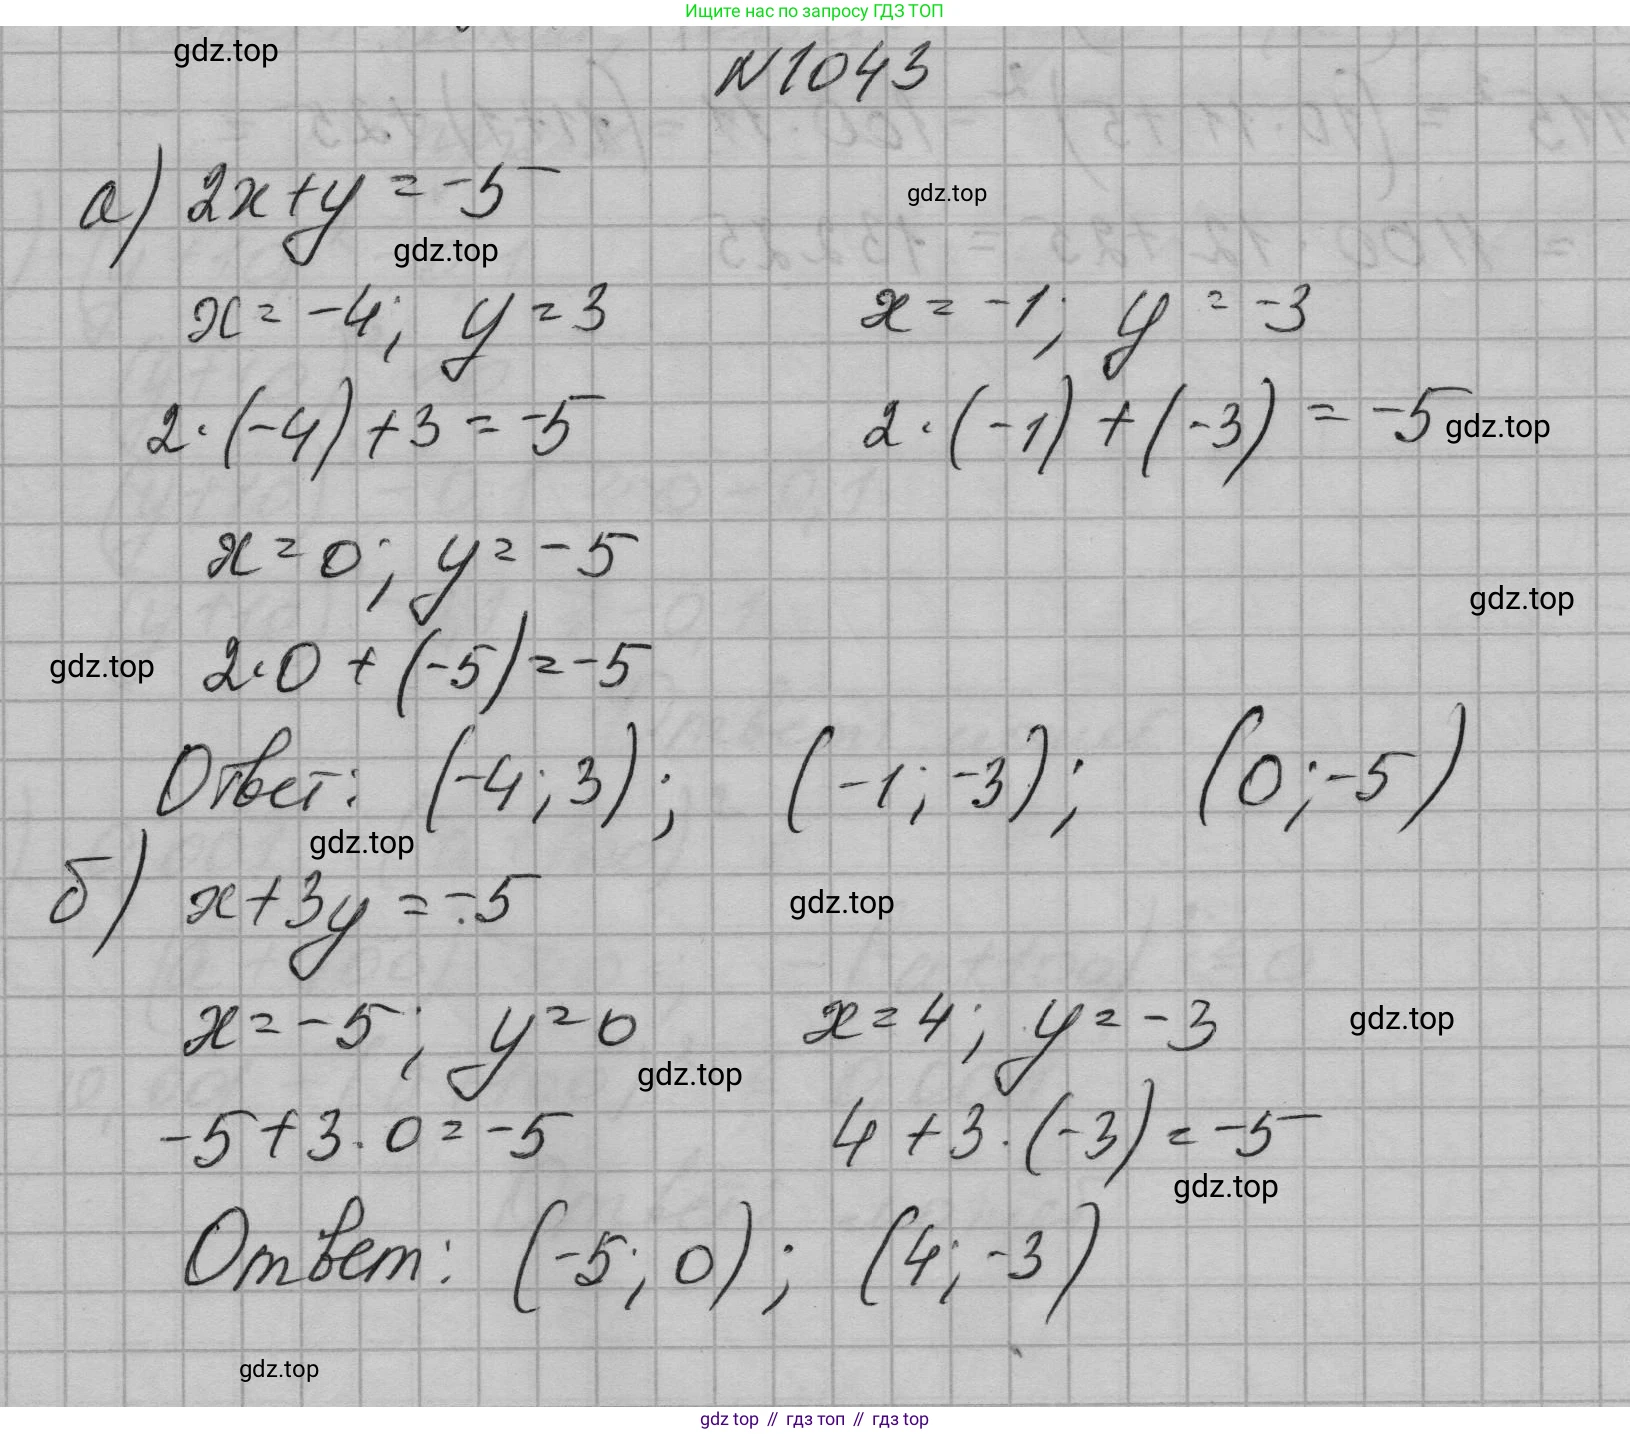 Ищите нас по запросу ГДЗ ТОП
gdz.top
N1043
а) 2x+y = -5
gdz.top
gdz.top
x = -4; y = 3 x = -1; y = -3
2·(-4)+3 = -5 2·(-1)+(-3) = -5 gdz.top
x = 0; y = -5
gdz.top
gdz.top 2·0 + (-5) = -5
Ответ: (-4; 3); (-1; -3); (0; -5)
gdz.top
б) x+3y = -5 gdz.top
x = -5; y = 0 x = 4; y = -3 gdz.top
gdz.top
-5+3·0 = -5 4+3·(-3) = -5
gdz.top
Ответ: (-5; 0); (4; -3)
gdz.top
gdz top // гдз топ // гдз top